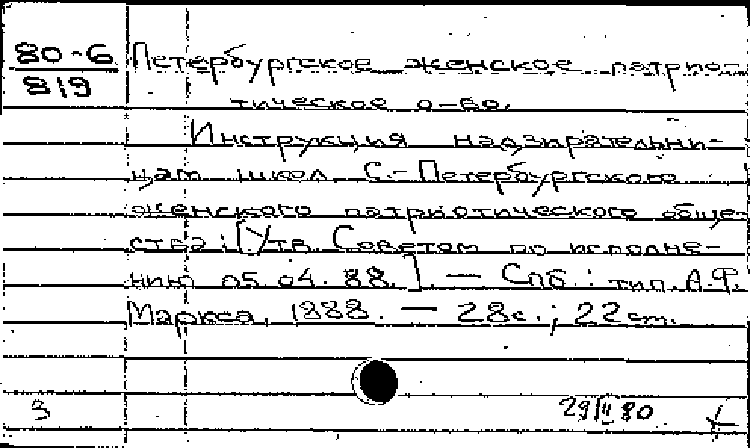 80-6
819
Петербургское женское патрио-
тическое о-во.
Инструкция надзирательни-
цам школ С.-Петербургского
женского патриотического обще-
ства: [Утв. Советом по исполне-
нию 05.04.88.]. — Спб.: тип. А.Ф.
Маркса, 1888. — 28с.; 22 см.
3
29/II 80